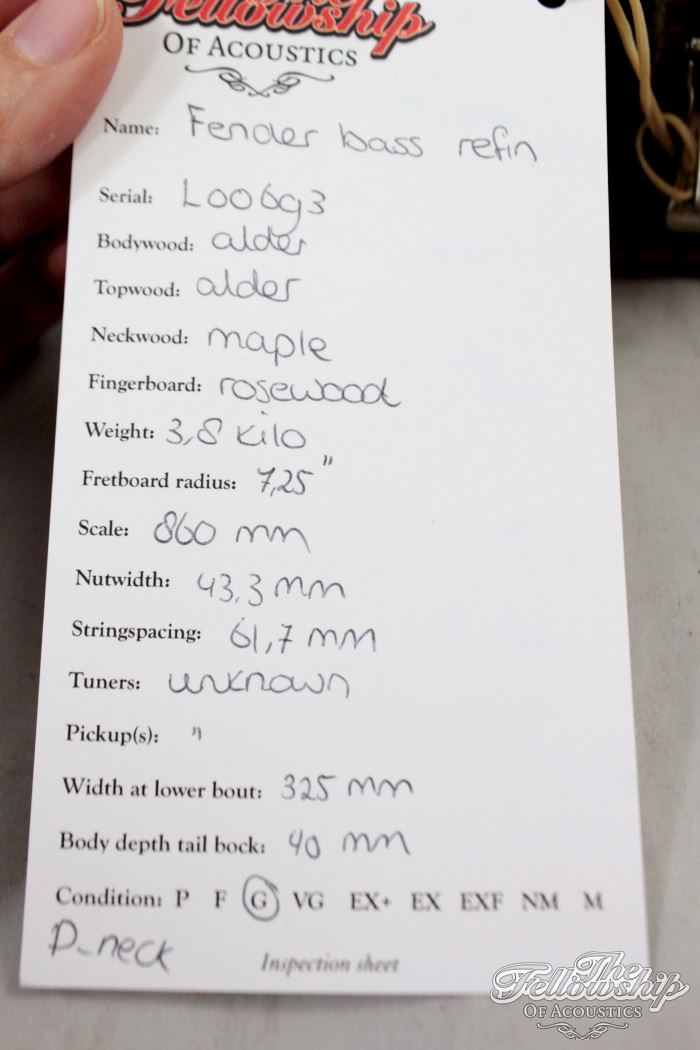 The
Fellowship
OF ACOUSTICS
Name: Fender bass refin
Serial: L00693
Bodywood: alder
Topwood: alder
Neckwood: maple
Fingerboard: rosewood
Weight: 3,8 kilo
Fretboard radius: 7,25"
Scale: 860 mm
Nutwidth: 43,3 mm
Stringspacing: 61,7 mm
Tuners: unknown
Pickup(s): "
Width at lower bout: 325 mm
Body depth tail bock: 40 mm
Condition: P F G VG EX+ EX EXF NM M
D-neck
Inspection sheet
The
Fellowship
OF ACOUSTICS